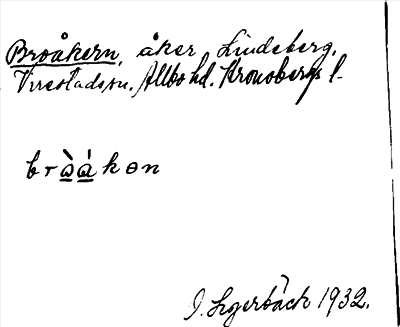 Broåkern, åker Lindeberg,
Virestads sn. Allbo hd. Kronobergs l.
bròȧkɵn
I. Ingerbäck 1932.